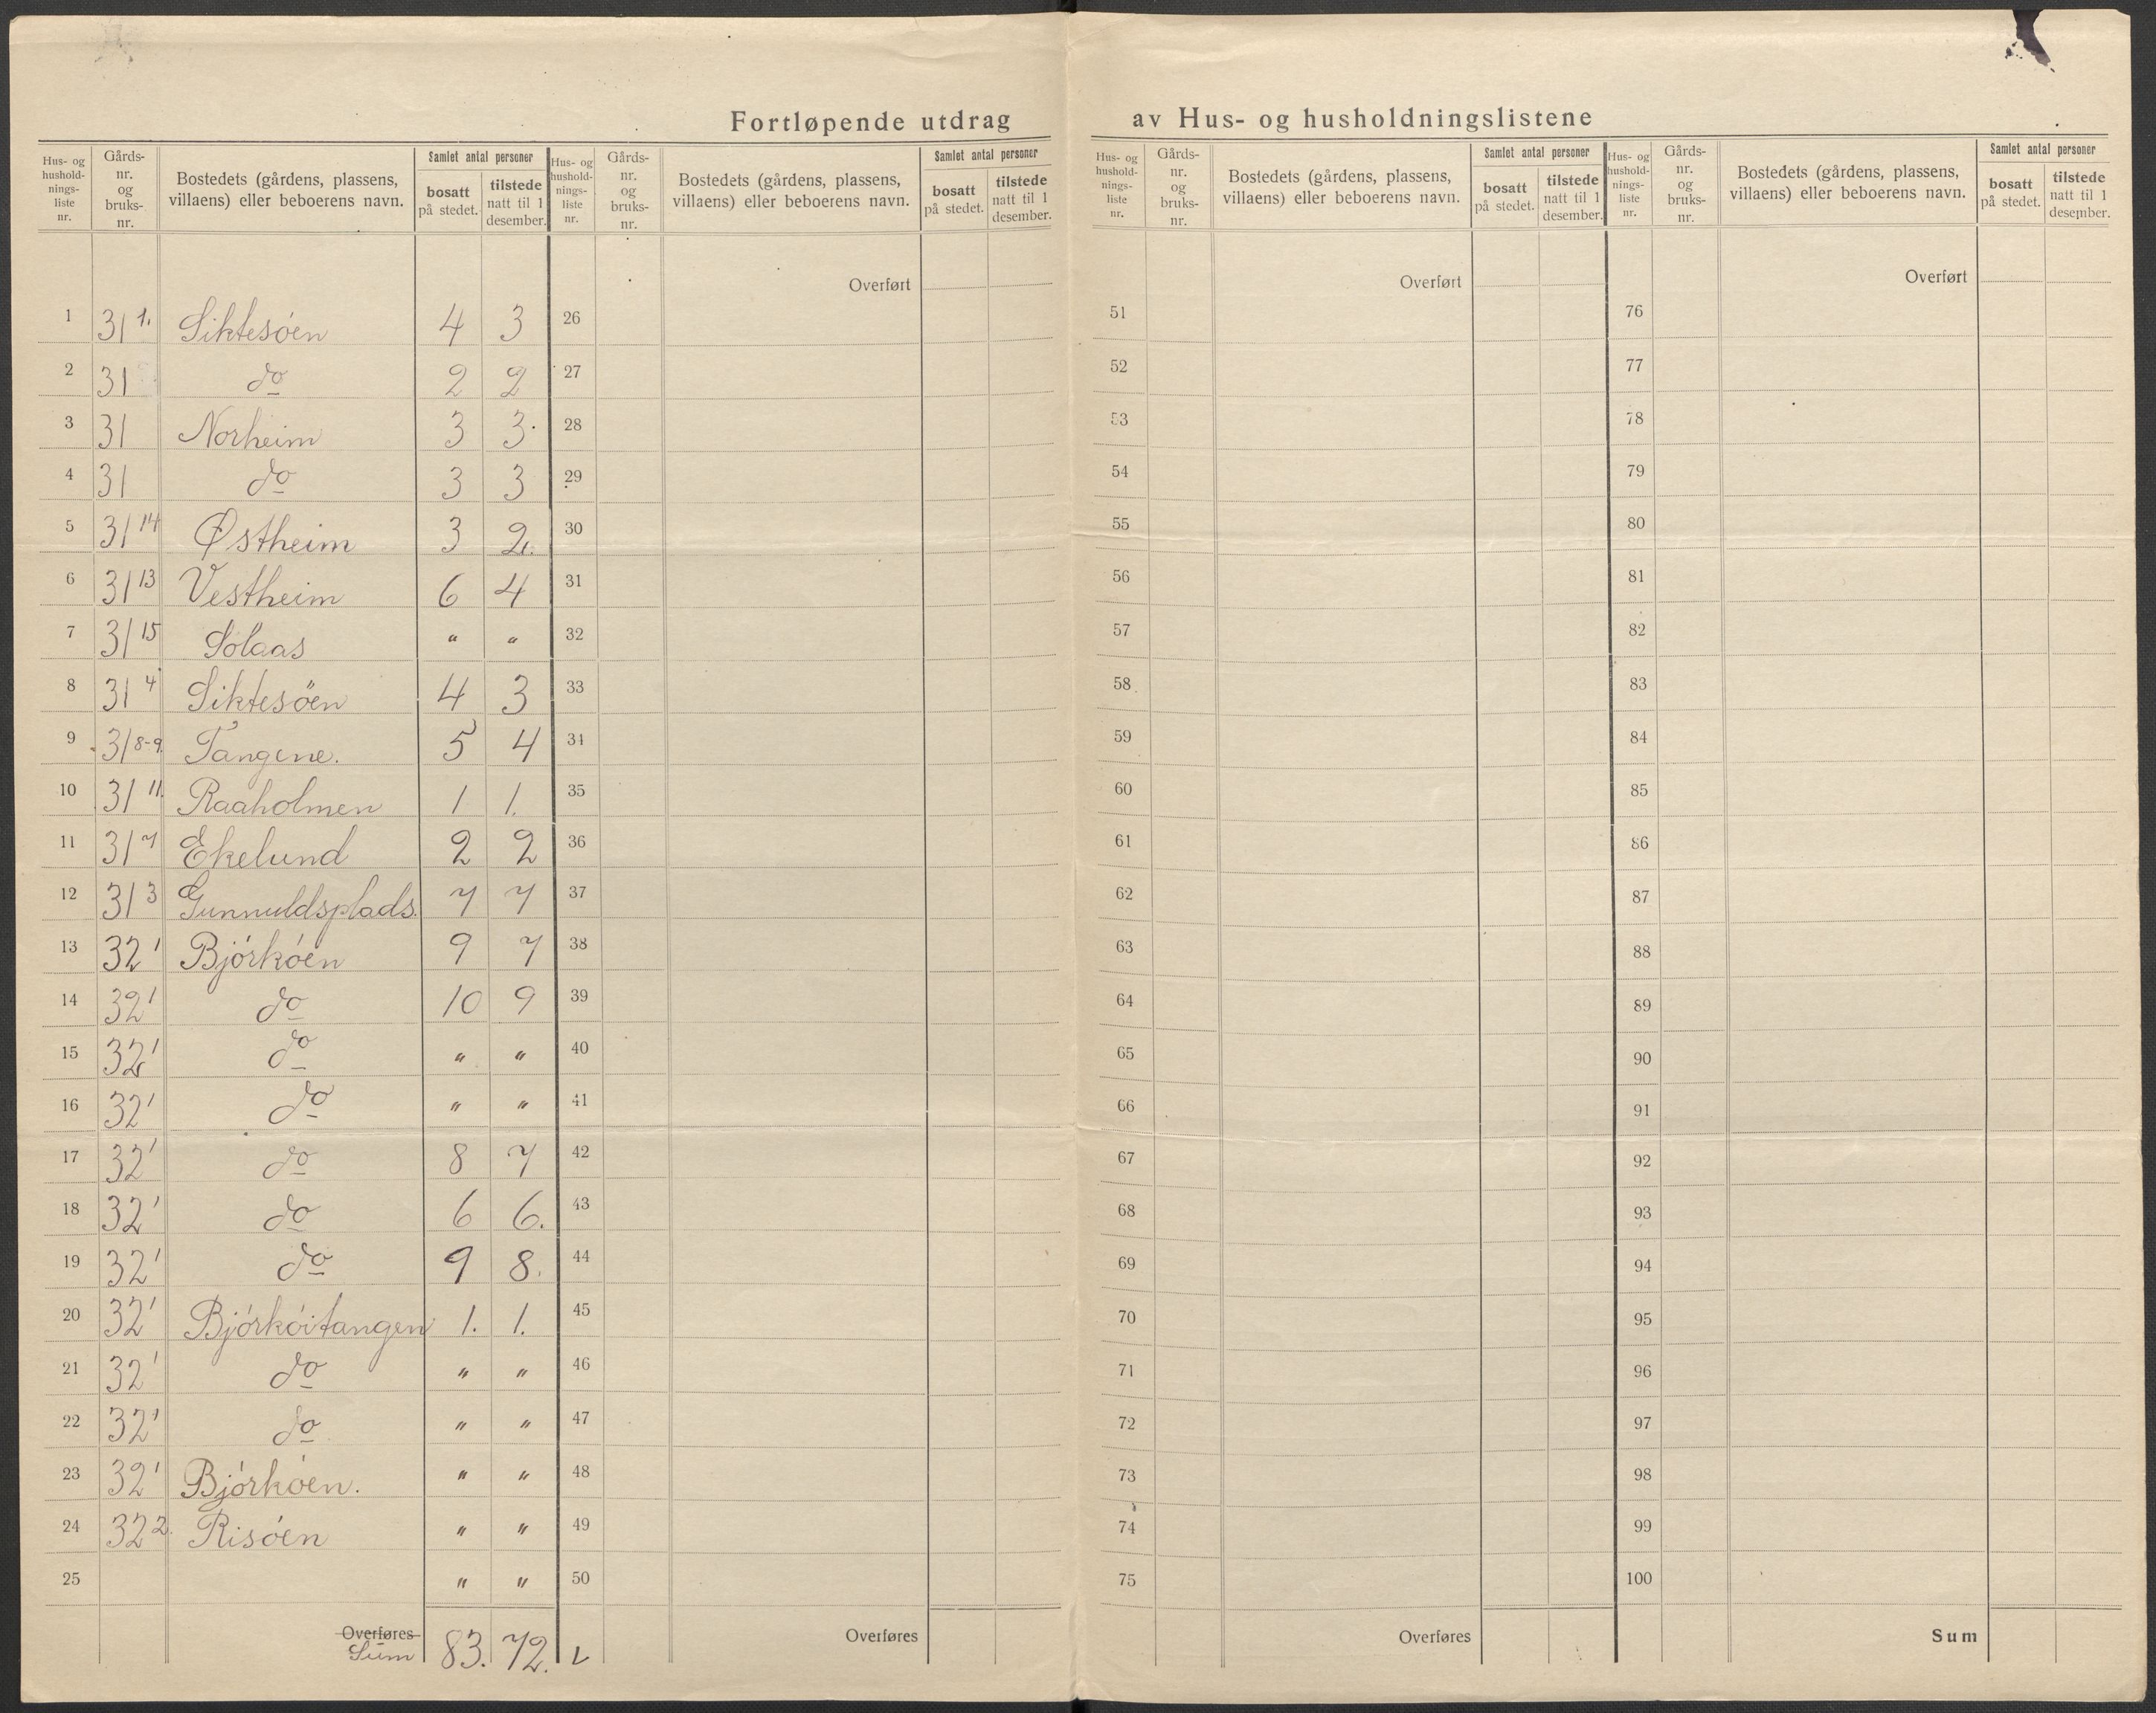 Fortløpende utdrag av Hus- og husholdningslistene
Hus- og husholdnings-liste nr. Gårds-nr. og bruks-nr. Bostedets (gårdens, plassens, villaens) eller beboerens navn. Samlet antal personer bosatt på stedet. tilstede natt til 1 desember.
Hus- og husholdnings-liste nr. Gårds-nr. og bruks-nr. Bostedets (gårdens, plassens, villaens) eller beboerens navn. Samlet antal personer bosatt på stedet. tilstede natt til 1 desember.
Hus- og husholdnings-liste nr. Gårds-nr. og bruks-nr. Bostedets (gårdens, plassens, villaens) eller beboerens navn. Samlet antal personer bosatt på stedet. tilstede natt til 1 desember.
Hus- og husholdnings-liste nr. Gårds-nr. og bruks-nr. Bostedets (gårdens, plassens, villaens) eller beboerens navn. Samlet antal personer bosatt på stedet. tilstede natt til 1 desember.
Overført Overført Overført
1 31 1. Siktesöen 4 3 26 51 76
2 31 do 2 2 27 52 77
3 31 Norheim 3 3. 28 53 78
4 31 do 3 3 29 54 79
5 31 14 Østheim 3 2. 30 55 80
6 31 13 Vestheim 6 4 31 56 81
7 31 15 Solaas " " 32 57 82
8 31 4 Siktesöen 4 3 33 58 83
9 31 8-9 Tangene. 5 4 34 59 84
10 31 11. Raaholmen 1 1. 35 60 85
11 31 7 Ekelund 2 2 36 61 86
12 31 3 Gunnuldsplads. 7 7 37 62 87
13 32 1 Björköen 9 7 38 63 88
14 32 1 do 10 9 39 64 89
15 32 1 do " " 40 65 90
16 32 1 do " " 41 66 91
17 32 1 do 8 7 42 67 92
18 32 1 do 6 6. 43 68 93
19 32 1 do 9 8. 44 69 94
20 32 1 Björköitangen 1. 1. 45 70 95
21 32 1 do " " 46 71 96
22 32 1 do " " 47 72 97
23 32 1 Björköen. " " 48 73 98
24 32 2. Risöen " " 49 74 99
25 " " 50 75 100
Overføres Overføres Overføres Sum
Sum 83. 72.